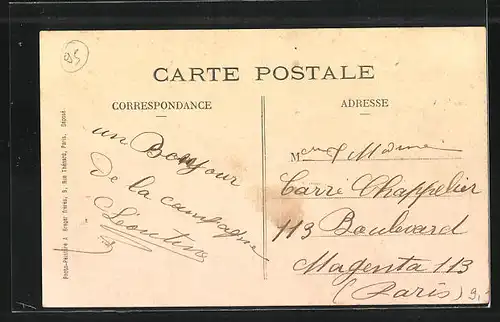 95
CARTE POSTALE
CORRESPONDANCE
ADRESSE
un Bonjour
de la campagne
Léontine
M
Carré Chappelier
113 Boulevard
Magenta 113
(Paris)
9.-
Breger frères, 9, Rue Thénard, Paris. Déposé.